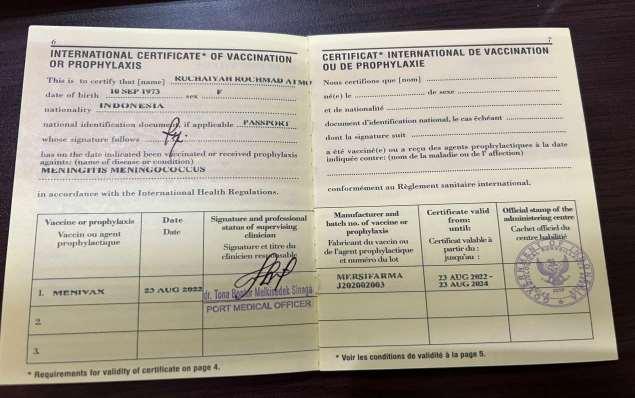 6
INTERNATIONAL CERTIFICATE* OF VACCINATION
OR PROPHYLAXIS
This is to certify that [name] RUCHAIYAH ROCHMAD ATMO
date of birth 10 SEP 1973 sex F
nationality INDONESIA
national identification document, if applicable PASSPORT
whose signature follows
has on the date indicated been vaccinated or received prophylaxis
against: (name of disease or condition)
MENINGITIS MENINGOCOCCUS
in accordance with the International Health Regulations.
Vaccine or prophylaxis
Vaccin ou agent
prophylactique
Date
Date
Signature and professional
status of supervising
clinician
Signature et titre du
clinicien responsable
1. MENIVAX
23 AUG 2022
dr. Tona Melkisedek Sinaga
PORT MEDICAL OFFICER
2.
3.
* Requirements for validity of certificate on page 4.
7
CERTIFICAT* INTERNATIONAL DE VACCINATION
OU DE PROPHYLAXIE
Nous certifions que [nom]
né(e) le de sexe
et de nationalité
document d'identification national, le cas échéant
dont la signature suit
a été vacciné(e) ou a reçu des agents prophylactiques à la date
indiquée contre: (nom de la maladie ou de l' affection)
conformément au Règlement sanitaire international.
Manufacturer and
batch no. of vaccine or
prophylaxis
Fabricant du vaccin ou
de l'agent prophylactique
et numéro du lot
Certificate valid
from:
until:
Certificat valable à
partir du :
jusqu'au :
Official stamp of the
administering centre
Cachet officiel du
centre habilité
MERSIFARMA
J202002003
23 AUG 2022 -
23 AUG 2024
* Voir les conditions de validité à la page 5.